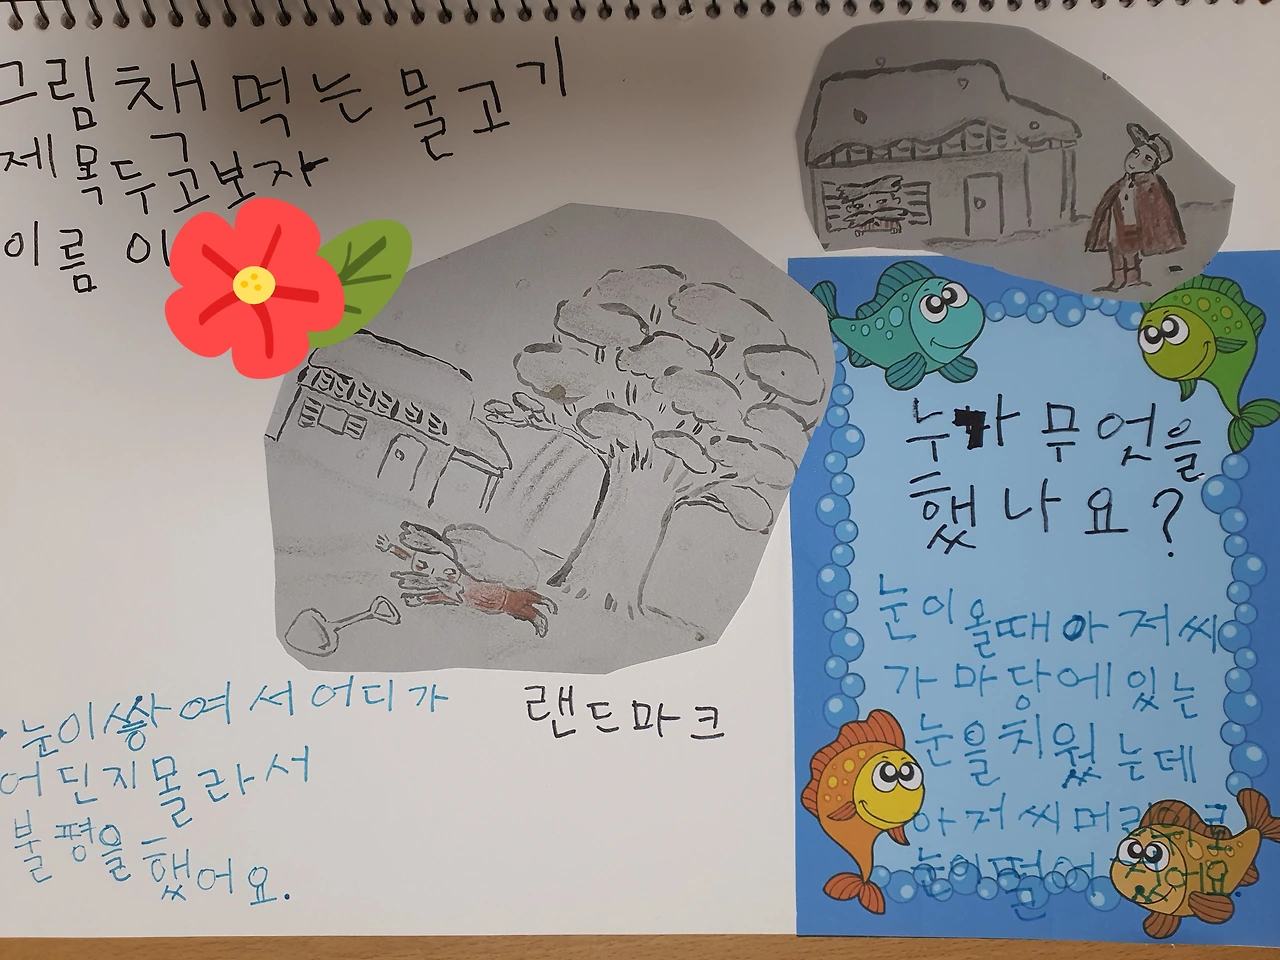 그림책 먹는 물고기
제목두고보자
이름 이
눈이쌓여서어디가
어딘지몰라서
불평을했어요.
랜드마크
누가 무엇을
했나요?
눈이올때아저씨
가마당에있는
눈을치웠는데
아저씨머리위로
눈이떨어졌어요.